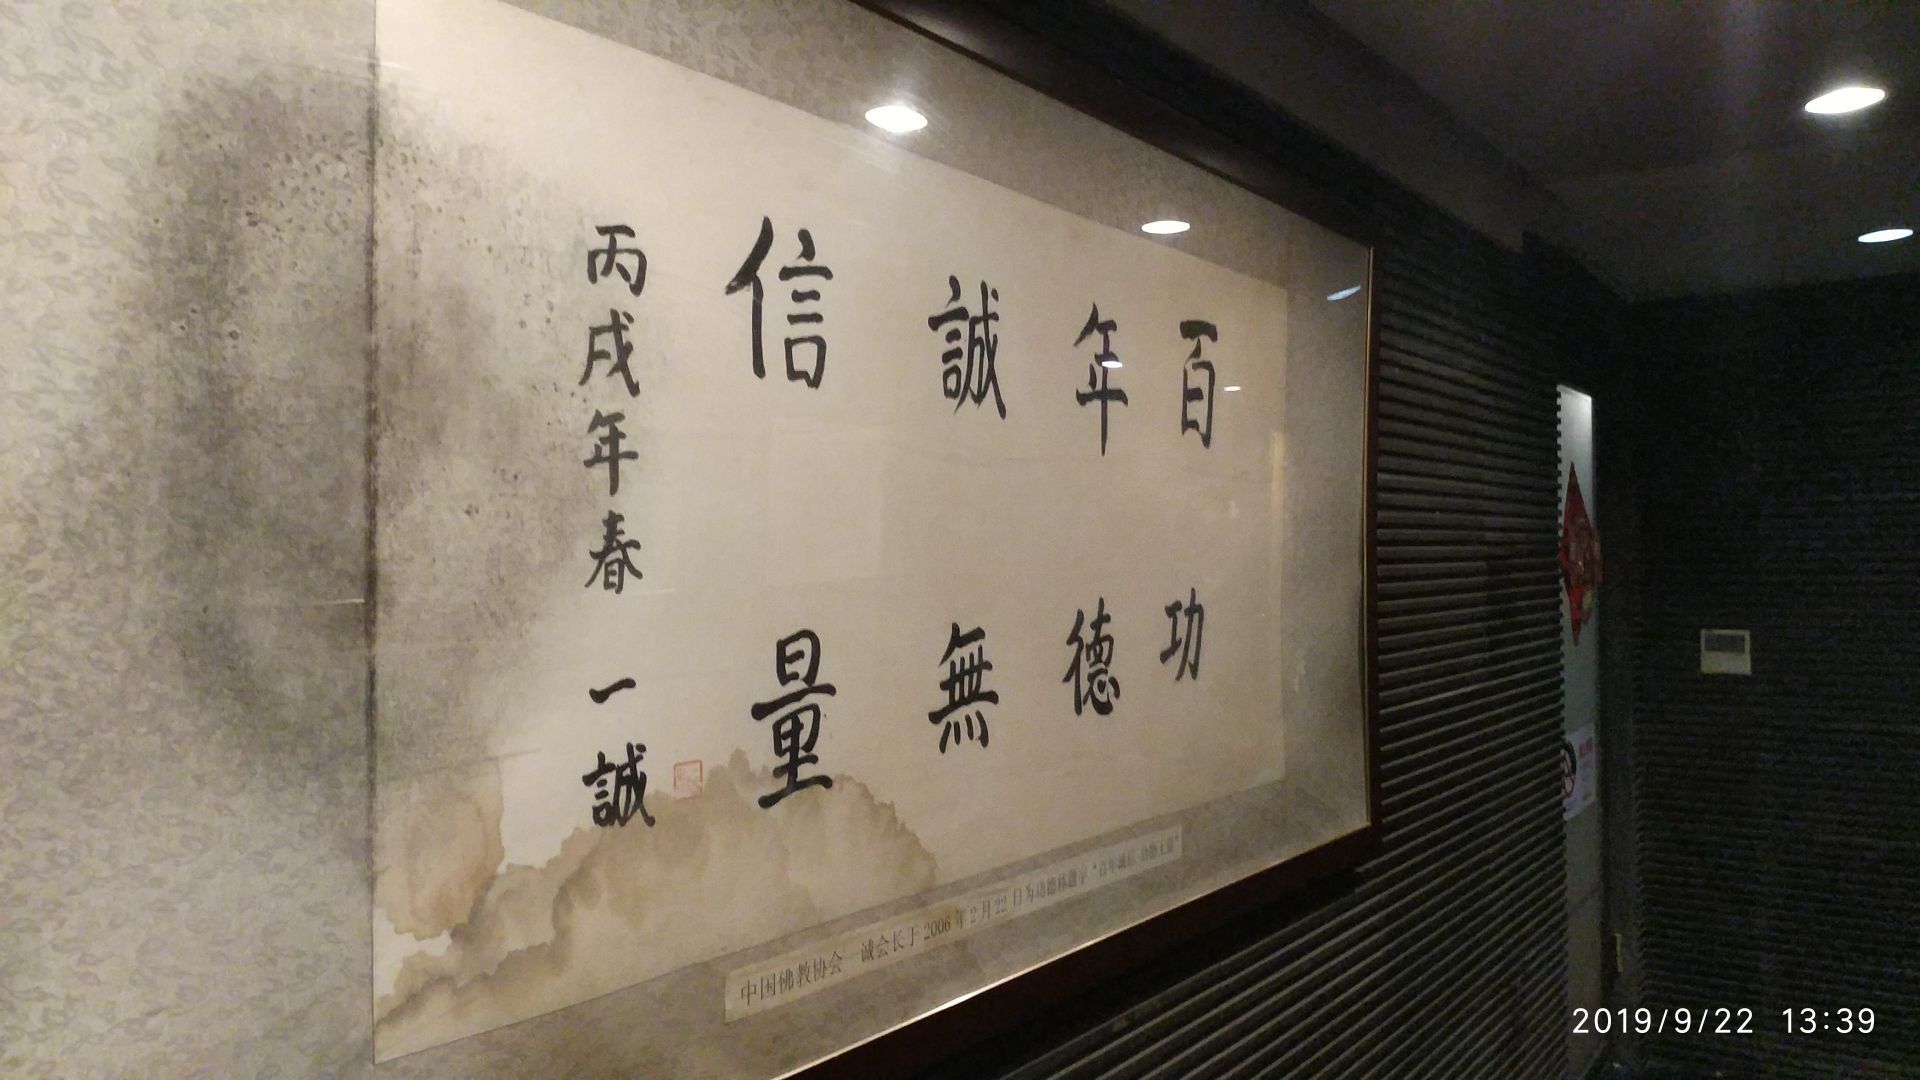 百年誠信
功德無量
丙戌年春 一誠
中国佛教协会一诚会长于2006年2月22日为功德林题字“百年诚信 功德无量”
2019/9/22 13:39